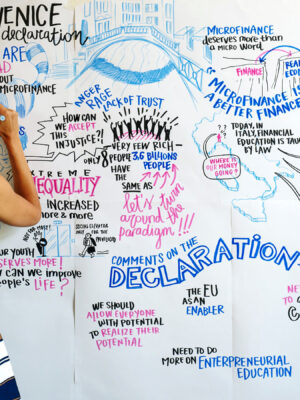 VENICE
declaration
ARE
MICROFINANCE
MICROFINANCE
deserves more than
a MICRO WORD
FINANCE
MICROFINANCE IS
A BETTER FINANCE
ANGER
RAGE
LACK OF TRUST
HOW CAN
WE ACCEPT
THIS
INJUSTICE?!
VERY FEW RICH
ONLY 8 PEOPLE
HAVE
THE
SAME AS
3,6 BILLIONS
PEOPLE
let's turn
around the
paradigm!!!
? TODAY, IN
ITALY, FINANCIAL
EDUCATION IS
TAUGHT
BY LAW
WHERE IS
OUR MONEY
GOING?
EXTREME
INEQUALITY
INCREASED
more & more
SOCIAL ELEVATOR
YOUTH
DESERVES MORE!
CAN WE IMPROVE
PEOPLE'S LIFE?
COMMENTS ON THE
DECLARATION
WE SHOULD
ALLOW EVERYONE
WITH POTENTIAL
TO REALIZE THEIR
POTENTIAL
THE EU
AS AN
ENABLER
NEED TO DO
MORE ON ENTERPRENEURIAL
EDUCATION